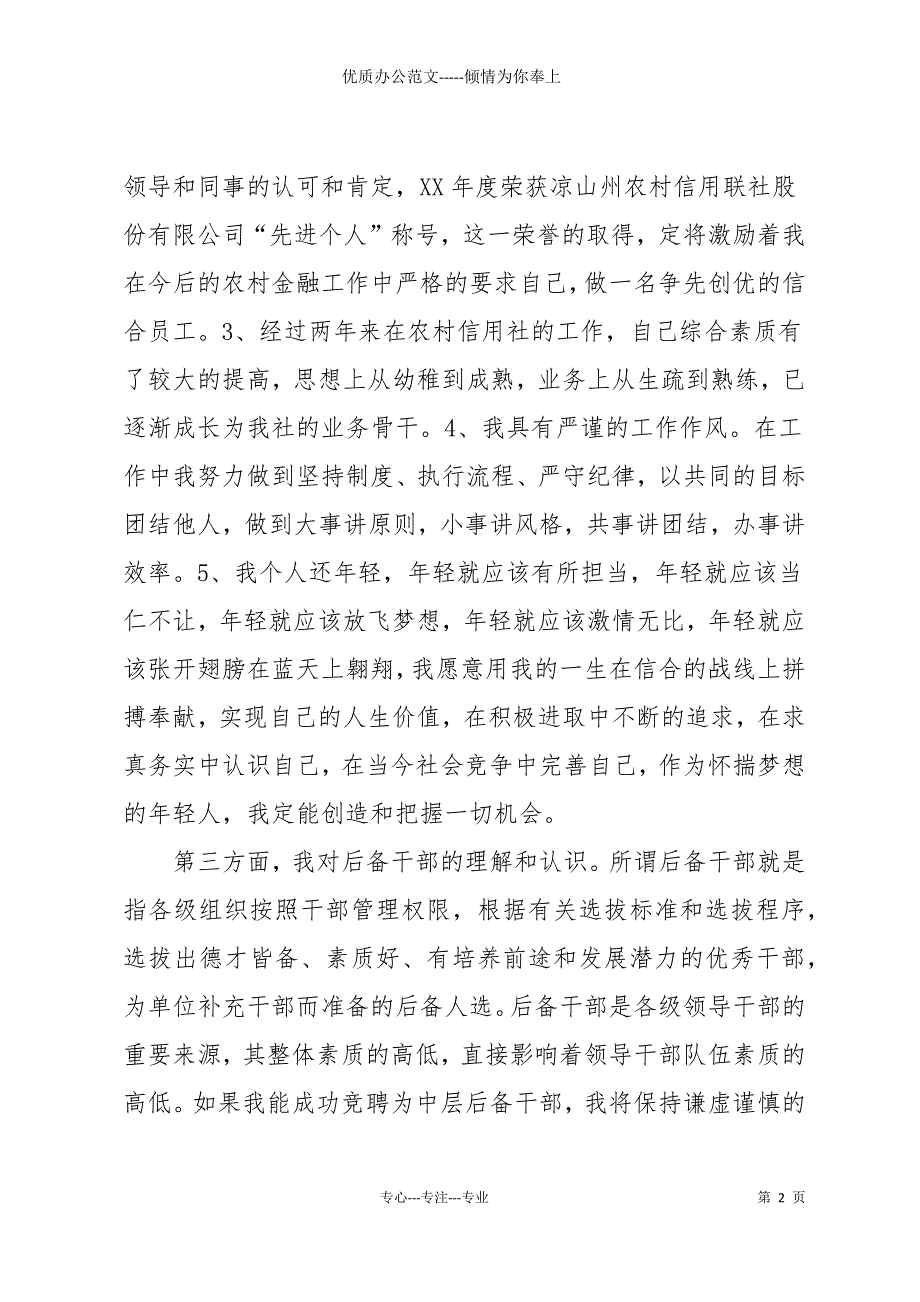 优质办公范文-----倾情为你奉上
领导和同事的认可和肯定，XX 年度荣获凉山州农村信用联社股
份有限公司“先进个人”称号，这一荣誉的取得，定将激励着我
在今后的农村金融工作中严格的要求自己，做一名争先创优的信
合员工。3、经过两年来在农村信用社的工作，自己综合素质有
了较大的提高，思想上从幼稚到成熟，业务上从生疏到熟练，已
逐渐成长为我社的业务骨干。4、我具有严谨的工作作风。在工
作中我努力做到坚持制度、执行流程、严守纪律，以共同的目标
团结他人，做到大事讲原则，小事讲风格，共事讲团结，办事讲
效率。5、我个人还年轻，年轻就应该有所担当，年轻就应该当
仁不让，年轻就应该放飞梦想，年轻就应该激情无比，年轻就应
该张开翅膀在蓝天上翱翔，我愿意用我的一生在信合的战线上拼
搏奉献，实现自己的人生价值，在积极进取中不断的追求，在求
真务实中认识自己，在当今社会竞争中完善自己，作为怀揣梦想
的年轻人，我定能创造和把握一切机会。
第三方面，我对后备干部的理解和认识。所谓后备干部就是
指各级组织按照干部管理权限，根据有关选拔标准和选拔程序，
选拔出德才皆备、素质好、有培养前途和发展潜力的优秀干部，
为单位补充干部而准备的后备人选。后备干部是各级领导干部的
重要来源，其整体素质的高低，直接影响着领导干部队伍素质的
高低。如果我能成功竞聘为中层后备干部，我将保持谦虚谨慎的
专心---专注---专业
第 2 页